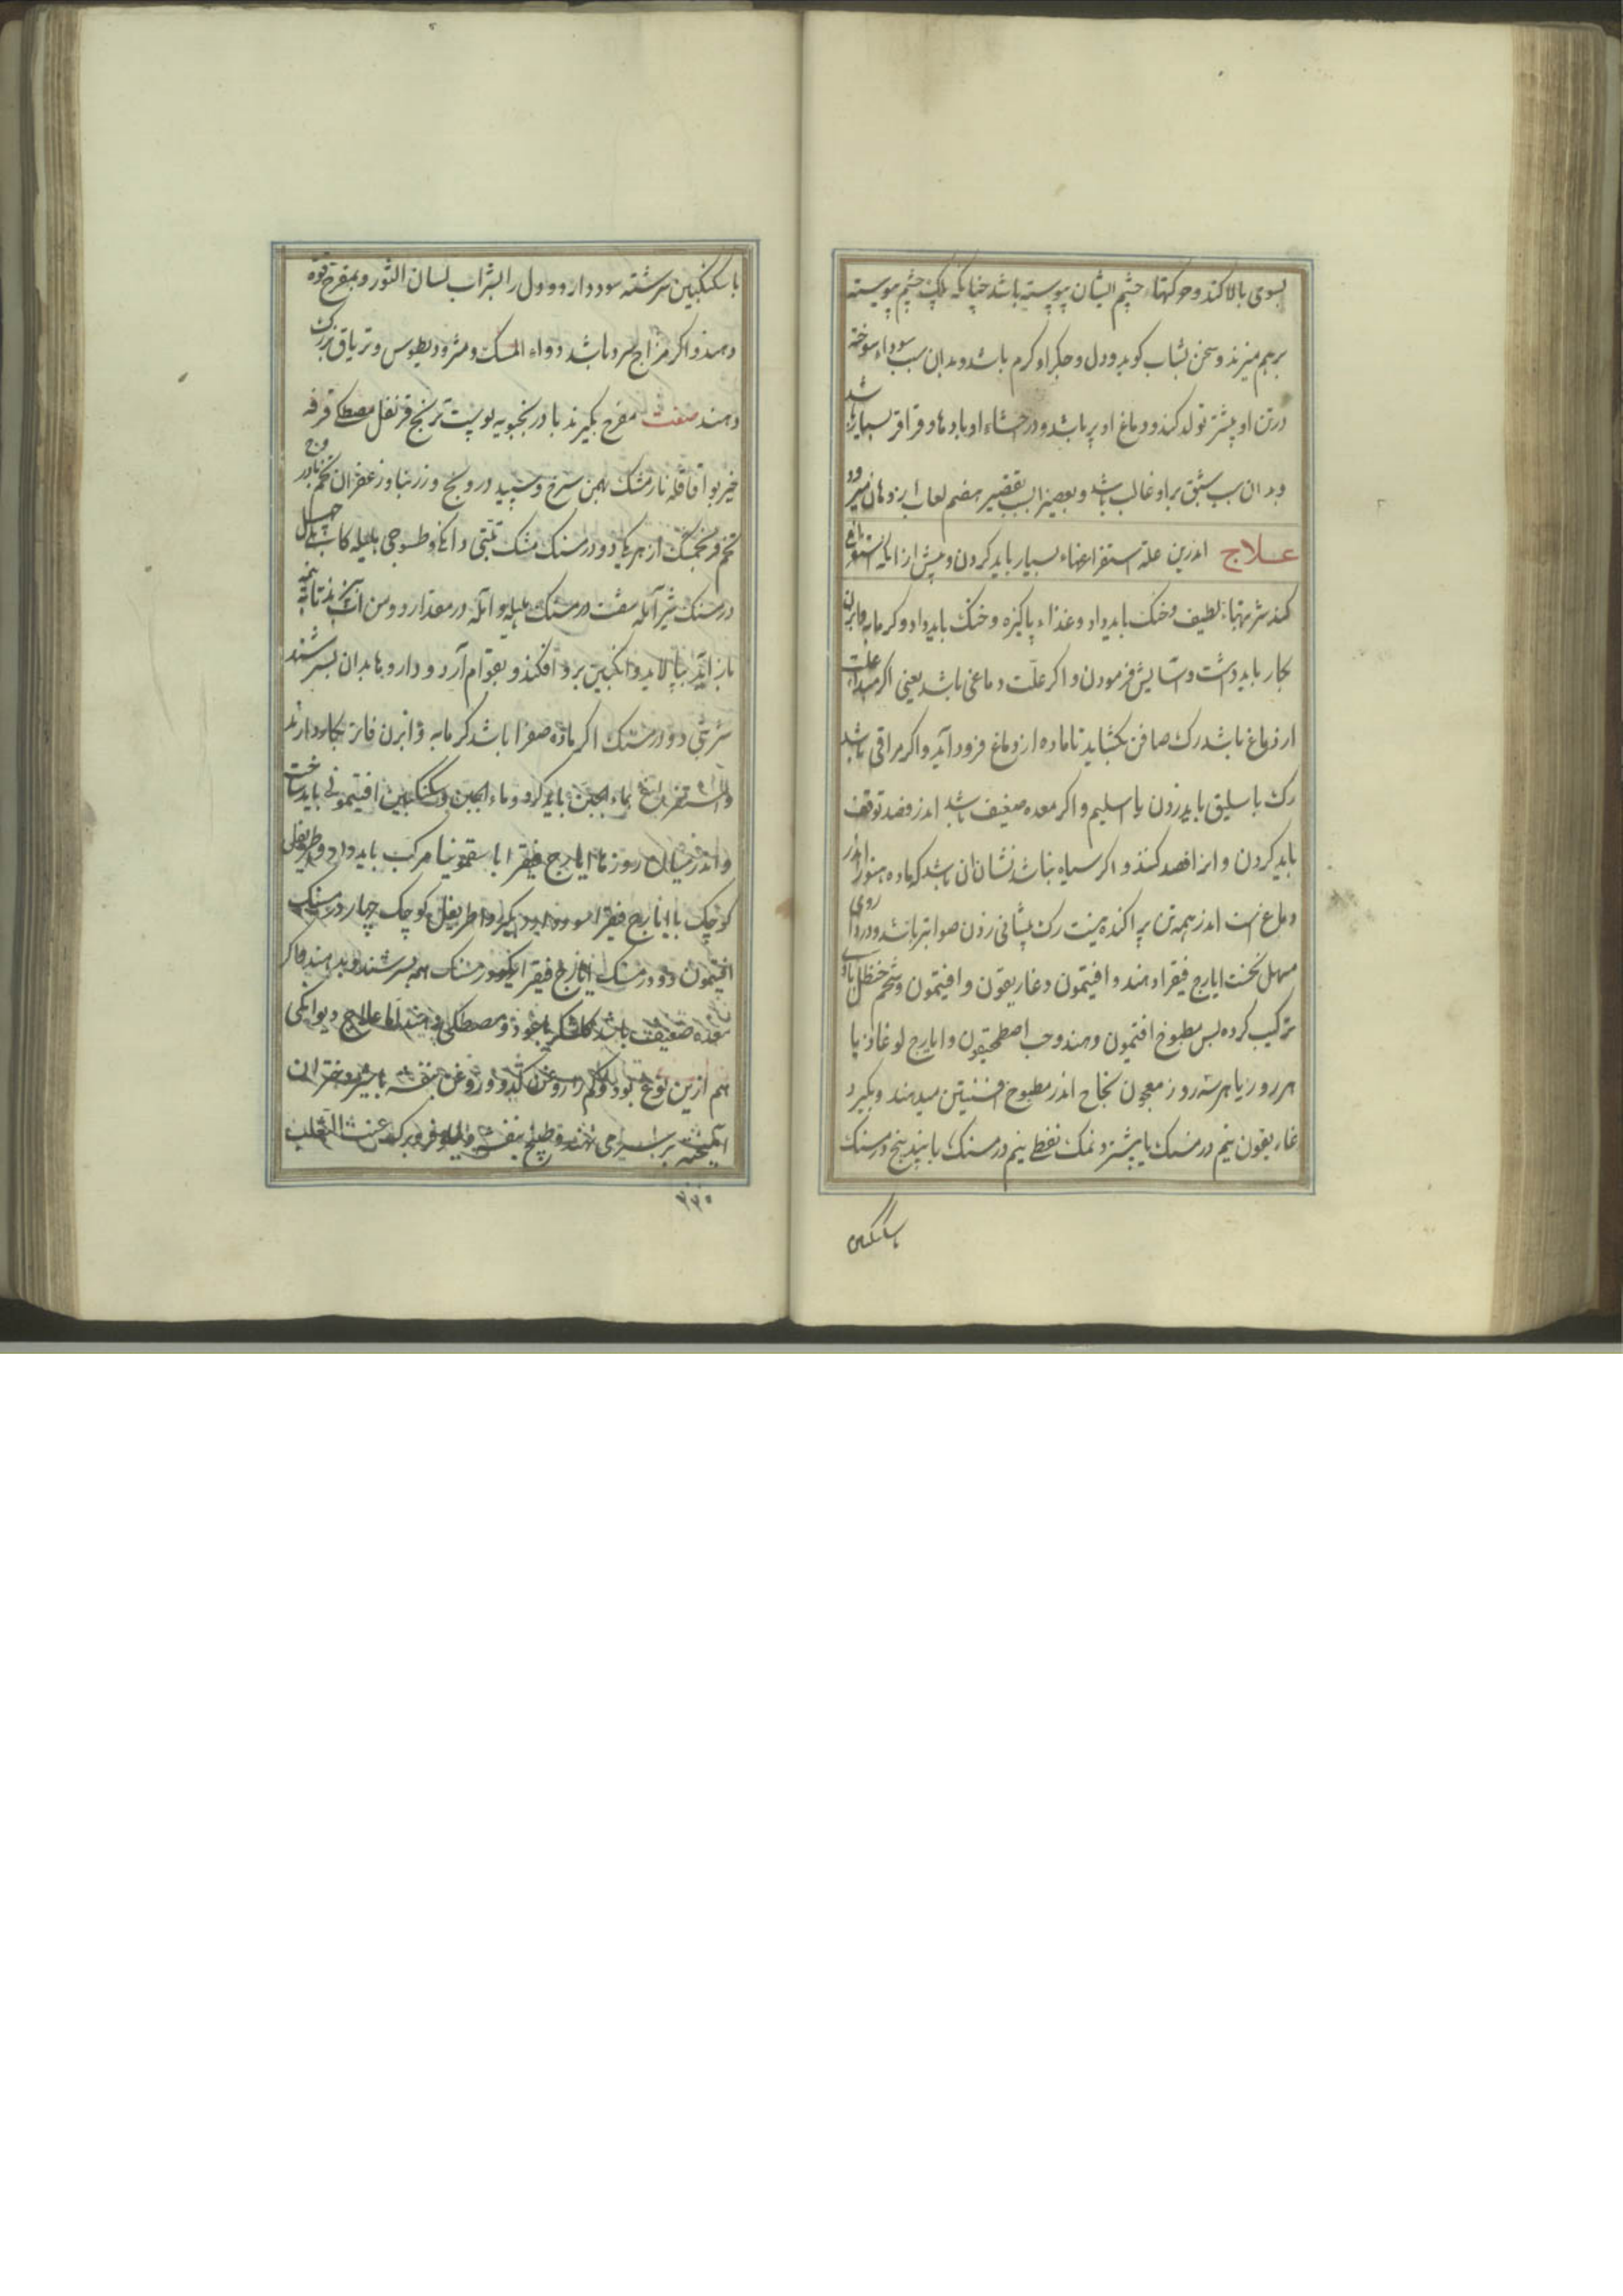 بسوی بالا کند و حرکتهاء چشم ایشان پیوسته باشد چنانکه پلک چشم پیوسته
برهم میزند و سخن بشتاب کوید و دل و جکر او کرم باشد و بدان سبب سوداء سوخته
در تن او بیشتر تولد کند و دماغ او پر باشد و در احشاء او بادها و قراقر بسیار باشد
و بدان سبب شبق بر او غالب باشد و بعضی را بسبب تقصیر هضم لعاب از دهان میرود
علاج اندرین علة استفراغهاء بسیار باید کردن و پیش از انکه استفراغ
کنند شربتهاء لطیف و خنک باید داد و غذاء پاکیزه و خنک باید داد و کرمابه و ابزن
بکار باید داشت و آسایش فرمودن و اکر علت دماغی باشد یعنی اکر مبداء علت
از دماغ باشد رک صافن بکشاید تا ماده از دماغ فرود آید و اکر مراقی باشد
رک باسلیق باید زدن یا اسلیم و اکر معده ضعیف باشد اندر فصد توقف
باید کردن و اکر فصد کنند و اکر سیاه نباشد نشان آن باشد که ماده هنوز اندر
دماغ است اندر همه تن پراکنده نیست رک پیشانی زدن صوابتر باشد و داروی
مسهل نخست ایارج فیقرا دهند و افتیمون و غاریقون و افتیمون و شحم حنظل با وی
ترکیب کرده پس مطبوخ افتیمون دهند و حب اصطمحیقون و ایارج لوغاذیا
هر روز یا هر سه روز معجون نجاح اندر مطبوخ افسنتین میدهند و بکیرد
غاریقون نیم درمسنک یا بیشتر و نمک نفطی نیم درمسنک با بیند پنج درمسنک
باسکنکبین
با سکنکبین سرشته سود دارد و دل را بشراب لسان الثور و بمفرح قوة
دهند و اکر مزاج سرد باشد دواء المسک و مثرودیطوس و تریاق بزرک
دهند صفت مفرح بکیرند بادرنجبویه پوست ترنج قرنفل مصطکی قرفه
خیربوا قاقله نارمشک بهمن سرخ و سپید درونج و زرنباد و زعفران تخم بادروج
تخم فرنجمشک از هر یکی دو درمسنک مشک تبتی دانکی و طسوجی هلیله کابلی چهل
درمسنک شیر آمله شصت درمسنک هلیله و آمله در مقدار دو من آب بپزند تا به نیمه
باز آید بپالاید و انکبین برو افکند و بقوام آرد و داروها بدان بسرشند
شربتی دو درمسنک اکر ماده صفرا باشد کرمابه و ابزن فاتر بکار دارند
و استفراغ بماء الجبن باید کرد و ماء الجبن و سکنکبین افتیمونی باید ساخت
و اندر میان روزها ایارج فیقرا با سقمونیا مرکب باید داد و اطریفل
کوچک با ایارج فیقرا سود دارد بکیرد اطریفل کوچک چهار درمسنک
افتیمون دو درمسنک ایارج فیقرا یک درمسنک همه بسرشند و بدهند و اکر
معده ضعیف باشد کلشکر با عود و مصطکی دهند اما علاج دیوانکی
هم ازین نوع بود روغن کدو و روغن بنفشه با شیر دختران
آمیخته بر سر می نهند و طبیخ بنفشه و نیلوفر و برک عنب الثعلب